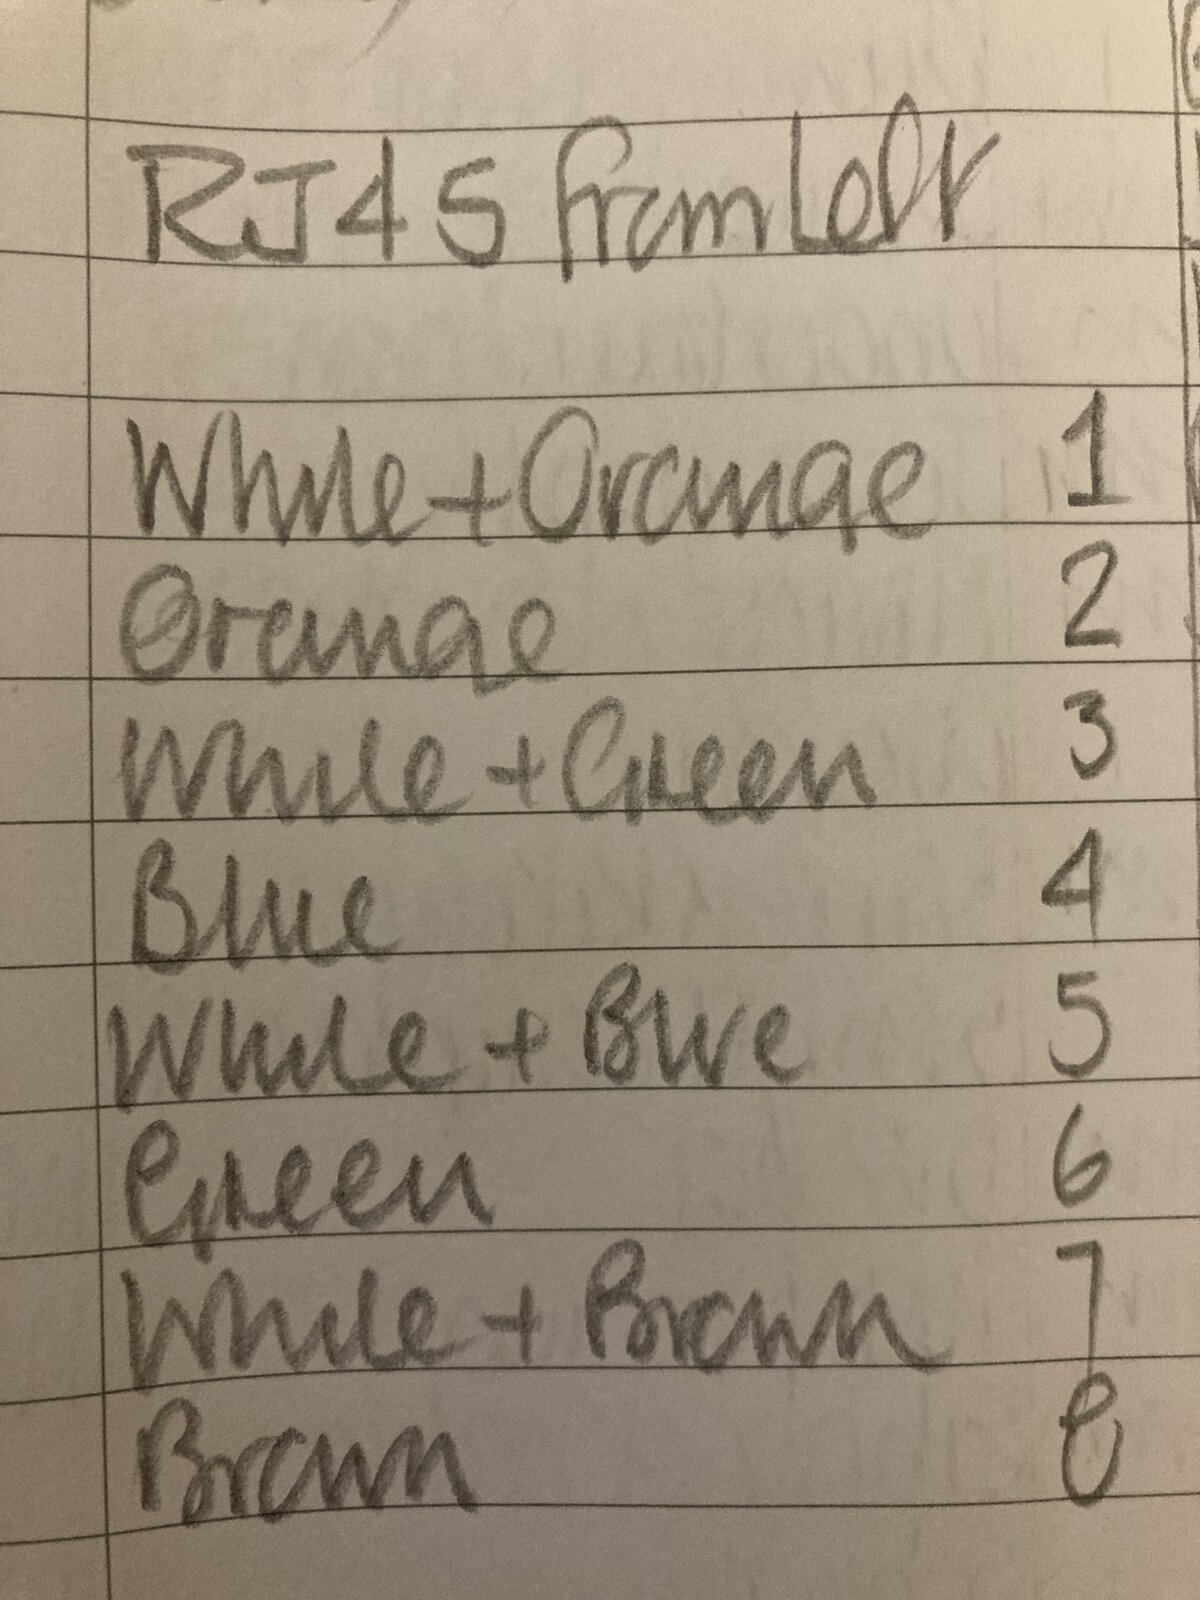 RJ45 from Left
White + Orange 1
Orange 2
White + Green 3
Blue 4
White + Blue 5
Green 6
White + Brown 7
Brown 8